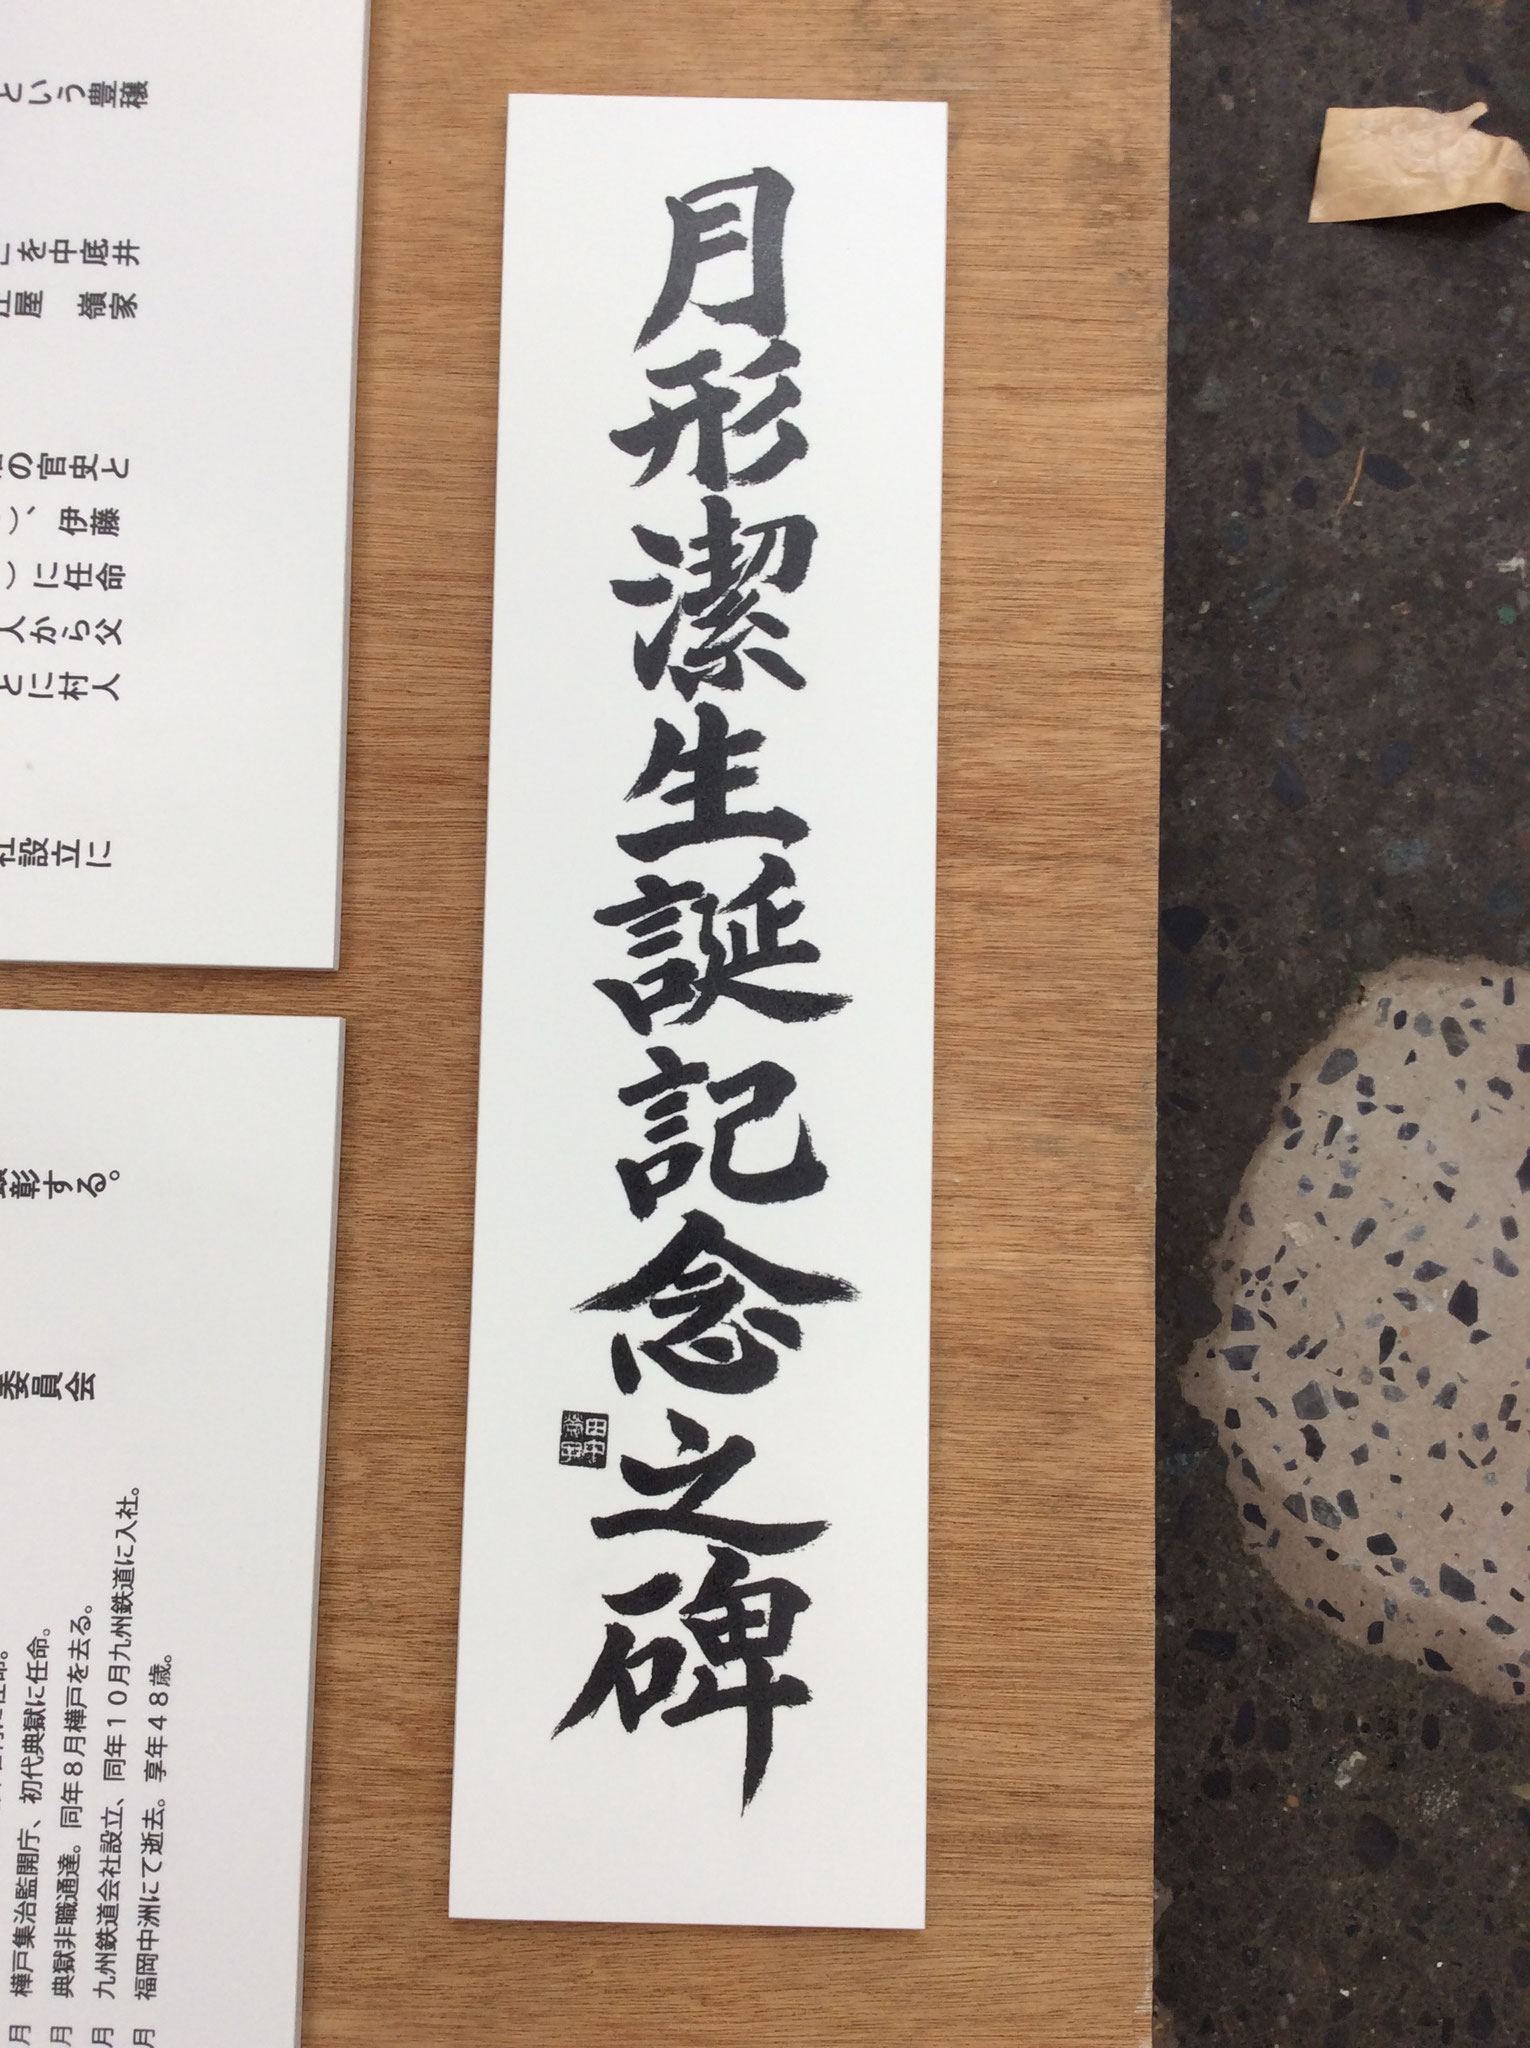 月形潔生誕記念之碑
田中
という豊穣
を中底井
屋 嶺家
の官史と
、伊藤
に任命
人から父
とに村人
設立に
彰する。
委員会
月 樺戸集治監開庁、初代典獄に任命。
月 典獄非職通達。同年8月樺戸を去る。
月 九州鉄道会社設立、同年10月九州鉄道に入社。
月 福岡中洲にて逝去。享年48歳。